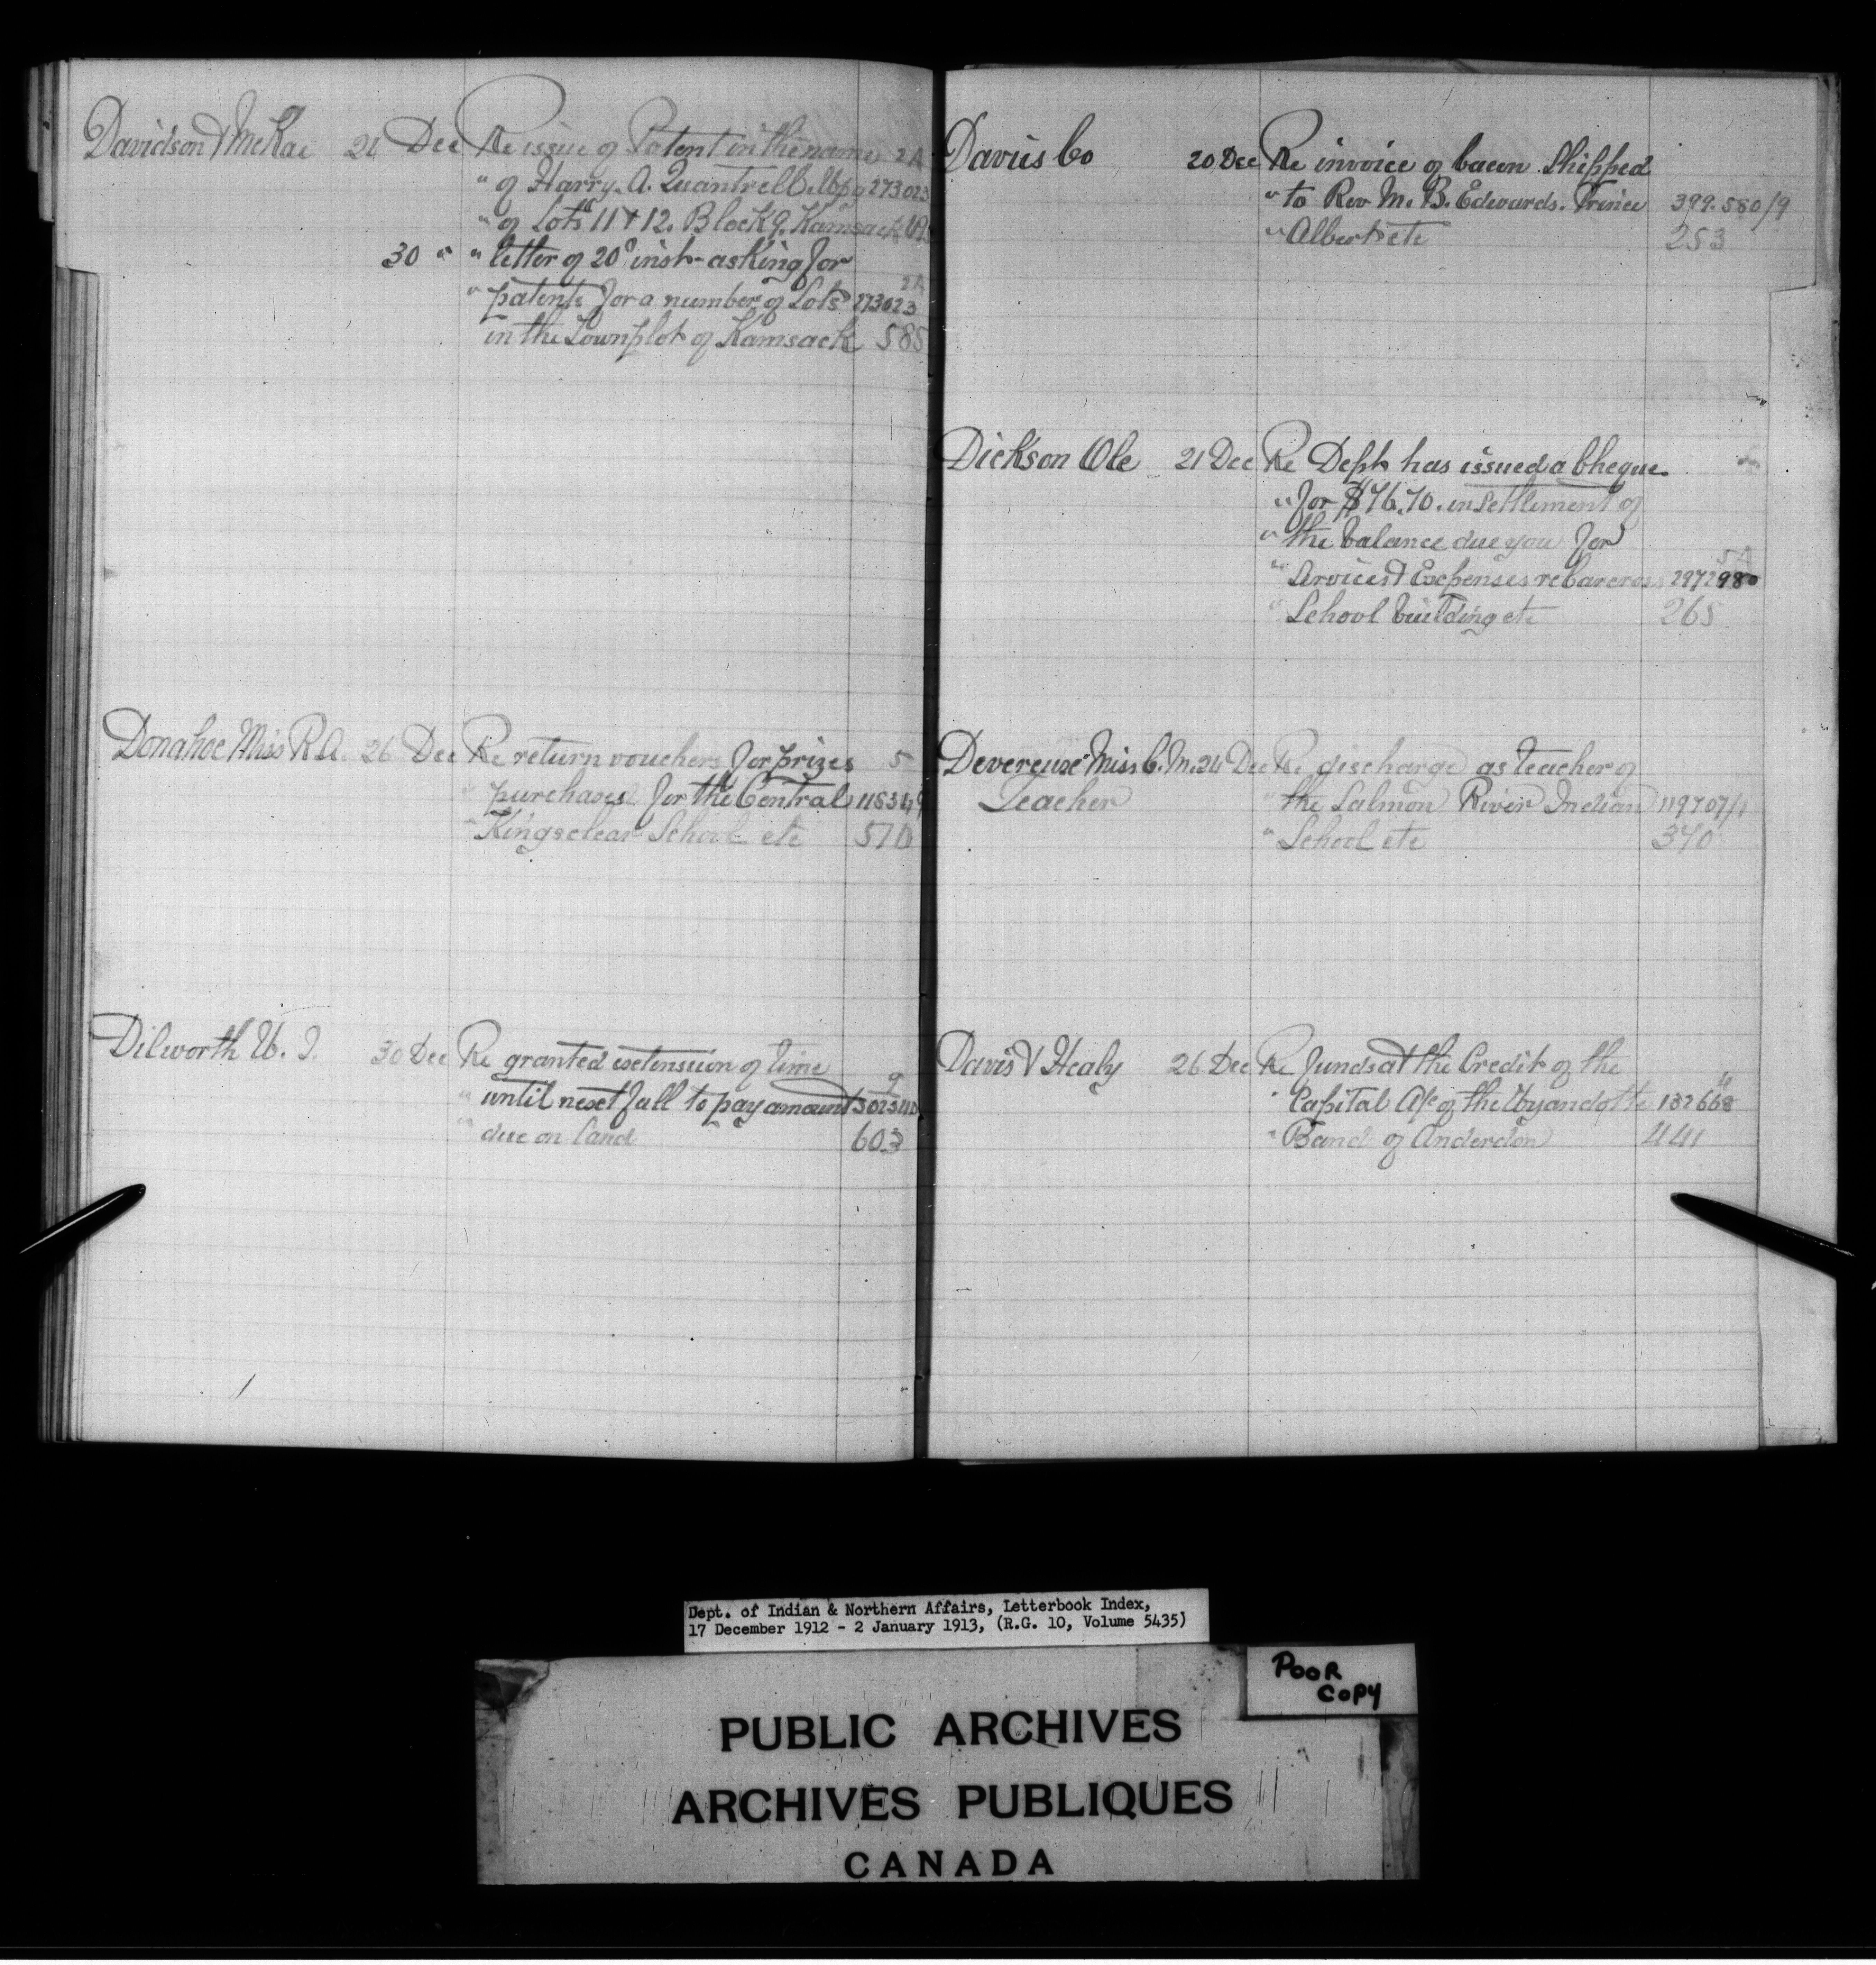 Davidson & McRae 24 Dec Re issue of Patent in the name 2A
" of Harry. A. Quantrell. Wpg 273023
" of Lots 11 & 12. Block 9. Kamsack
30 " " letter of 20th inst - asking for
" patents for a number of Lots 2A 273023
in the Townplot of Kamsack 585
Donahoe Miss R. A. 26 Dec Re return vouchers for prizes 5
" purchased for the Central
" Kingsclear School etc
Dilworth W. J. 30 Dec Re granted extension of time
" until next fall to pay amount
" due on land 603
Davies Co 20 Dec Re invoice of bacon shipped
" to Rev M. B. Edwards. Prince 399.580/9
" Albert etc 253
Dickson Ole 21 Dec Re Dept has issued a Cheque
" for $76.70. in settlement of
" the balance due you for
" Services & Expenses re 5A 297298
" School building etc 265
Devereux Miss C. M. 24 Dec Re discharge as teacher of
Teacher " the Salmon River Indian 119707/1
" School etc 370
Davis & Healy 26 Dec Re funds at the Credit of the
" Capital A/c of the Wyandotte 132668
" Band of Anderdon 441
Dept. of Indian & Northern Affairs, Letterbook Index,
17 December 1912 - 2 January 1913, (R.G. 10, Volume 5435)
POOR
COPY
PUBLIC ARCHIVES
ARCHIVES PUBLIQUES
CANADA